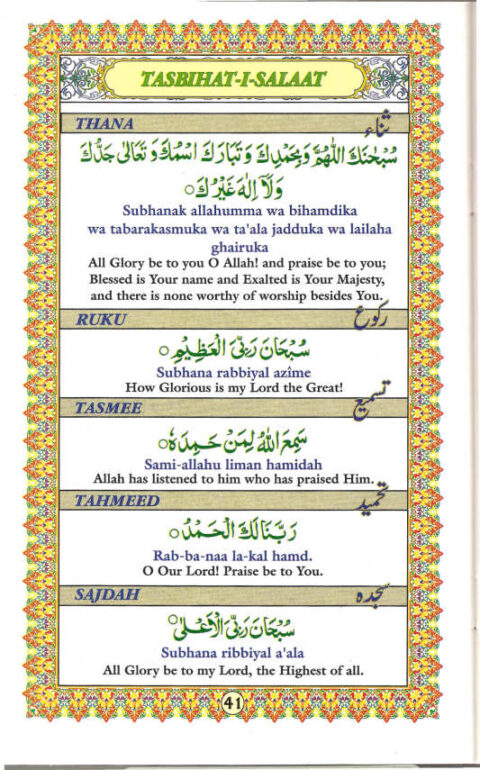 TASBIHAT-I-SALAAT
THANA ثناء
سُبْحٰنَكَ اللّٰهُمَّ وَبِحَمْدِكَ وَ تَبَارَكَ اسْمُكَ وَ تَعَالٰى جَدُّكَ
وَلَآ اِلٰهَ غَيْرُكَ
Subhanak allahumma wa bihamdika
wa tabarakasmuka wa ta'ala jadduka wa lailaha
ghairuka
All Glory be to you O Allah! and praise be to you;
Blessed is Your name and Exalted is Your Majesty,
and there is none worthy of worship besides You.
RUKU رکوع
سُبْحَانَ رَبِّىَ الْعَظِيْمِ
Subhana rabbiyal azîme
How Glorious is my Lord the Great!
TASMEE تسمیع
سَمِعَ اللّٰهُ لِمَنْ حَمِدَهٗ
Sami-allahu liman hamidah
Allah has listened to him who has praised Him.
TAHMEED تحمید
رَبَّنَا لَكَ الْحَمْدُ
Rab-ba-naa la-kal hamd.
O Our Lord! Praise be to You.
SAJDAH سجدہ
سُبْحَانَ رَبِّىَ الْاَعْلٰى
Subhana ribbiyal a'ala
All Glory be to my Lord, the Highest of all.
41